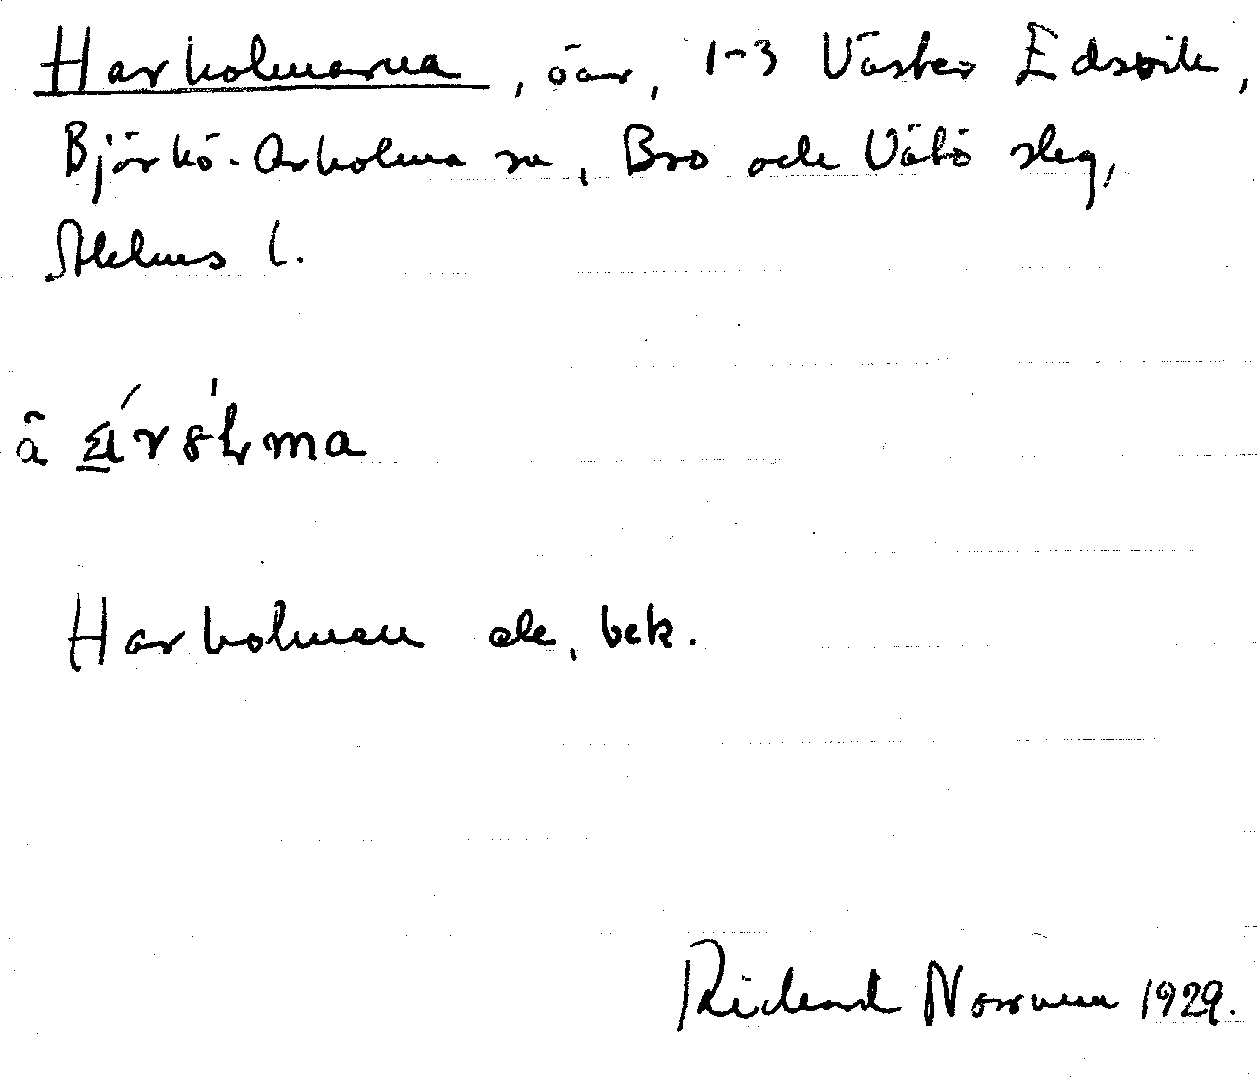 Harholmarna, öar, 1-3 Väster Edsvik,
Björkö-Arholma sn, Bro och Vätö skg,
Sthlms l.
Harholmen ek, bek.
Rickard Norrman 1929.